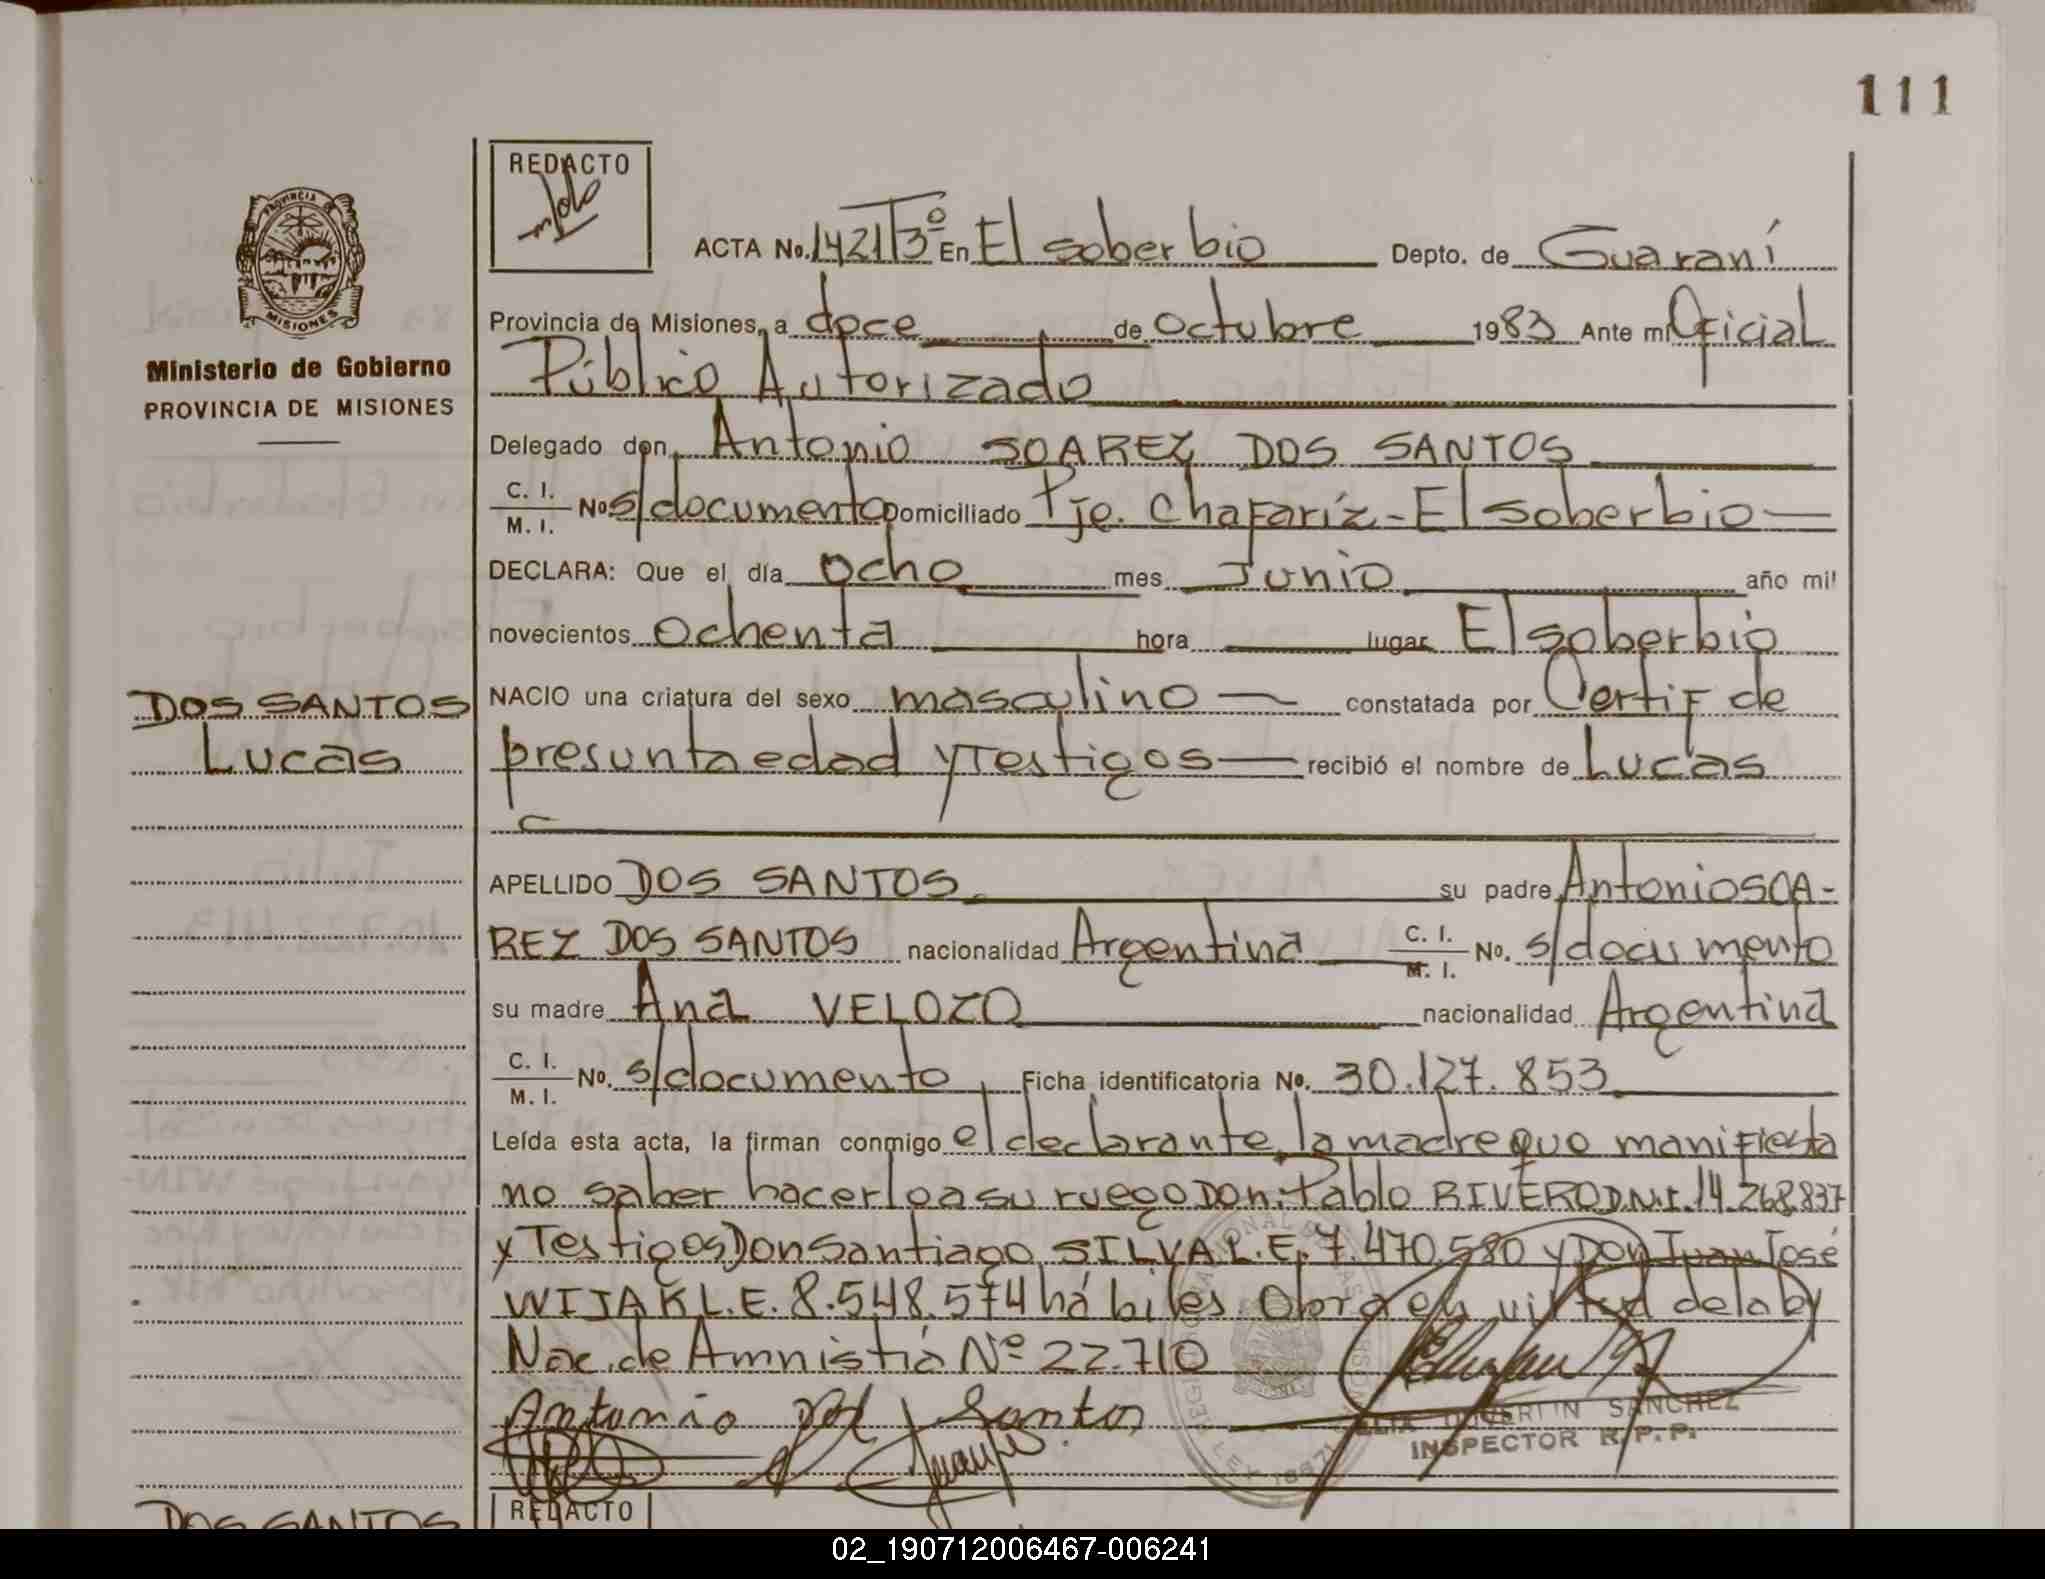 111
REDACTO
ACTA No. 1421 T3º En El soberbio Depto. de Guaraní
Provincia de Misiones, a doce de octubre 1983 Ante mí Oficial
Público Autorizado
Delegado don Antonio SOAREZ DOS SANTOS
C. I. / M. I. Nº s/documento Domiciliado Pje. Chafariz - El soberbio
DECLARA: Que el día ocho mes Junio año mil
novecientos ochenta hora lugar El soberbio
NACIO una criatura del sexo masculino constatada por Certif de
presunta edad y Testigos recibió el nombre de Lucas
APELLIDO DOS SANTOS su padre Antonio SOA-
REZ DOS SANTOS nacionalidad Argentina C. I. / M. I. No. s/documento
su madre Ana VELOZO nacionalidad Argentina
C. I. / M. I. No. s/documento Ficha identificatoria No. 30.127.853
Leída esta acta, la firman conmigo el declarante, la madre que manifiesta
no saber hacerlo a su ruego Don: Pablo RIVERO D.N.I. 14.268.837
y Testigos Don Santiago SILVA L.E. 7.470.580 y Don Juan José
WIJAK L.E. 8.548.574 hábiles. Obra en virtud de la ley
Nac. de Amnistia Nº 22.710
Antonio dos Santos
SANCHEZ
INSPECTOR R.P.P.
REDACTO
PROVINCIA DE
MISIONES
Ministerio de Gobierno
PROVINCIA DE MISIONES
DOS SANTOS
Lucas
DOS SANTOS
02_190712006467-006241